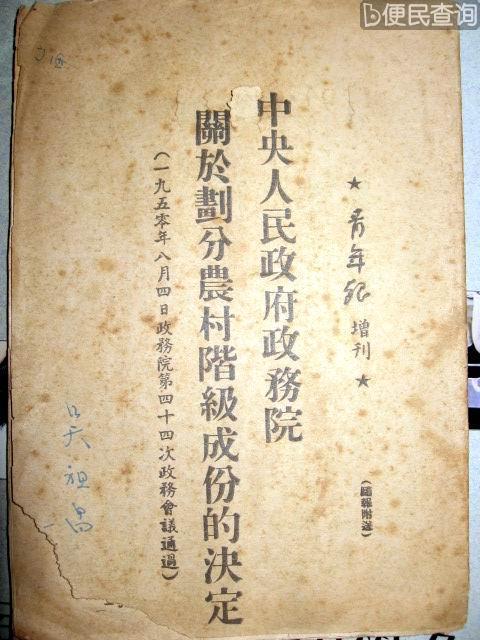 便民查询
★ 青年報 增刊 ★
(隨報附送)
中央人民政府政務院
關於劃分農村階級成份的決定
(一九五零年八月四日政務院第四十四次政務會議通過)
吴祖昌